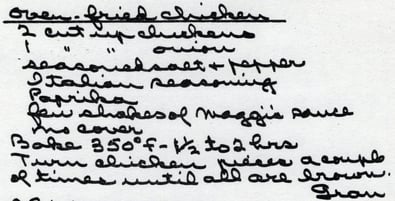 oven-fried chicken
2 cut up chickens
1 " " onion
seasoned salt + pepper
Italian seasoning
Paprika
few shakes of Maggi's sauce
no cover
Bake 350°f - 1½ to 2 hrs
Turn chicken pieces a couple
of times until all are brown.
Gran